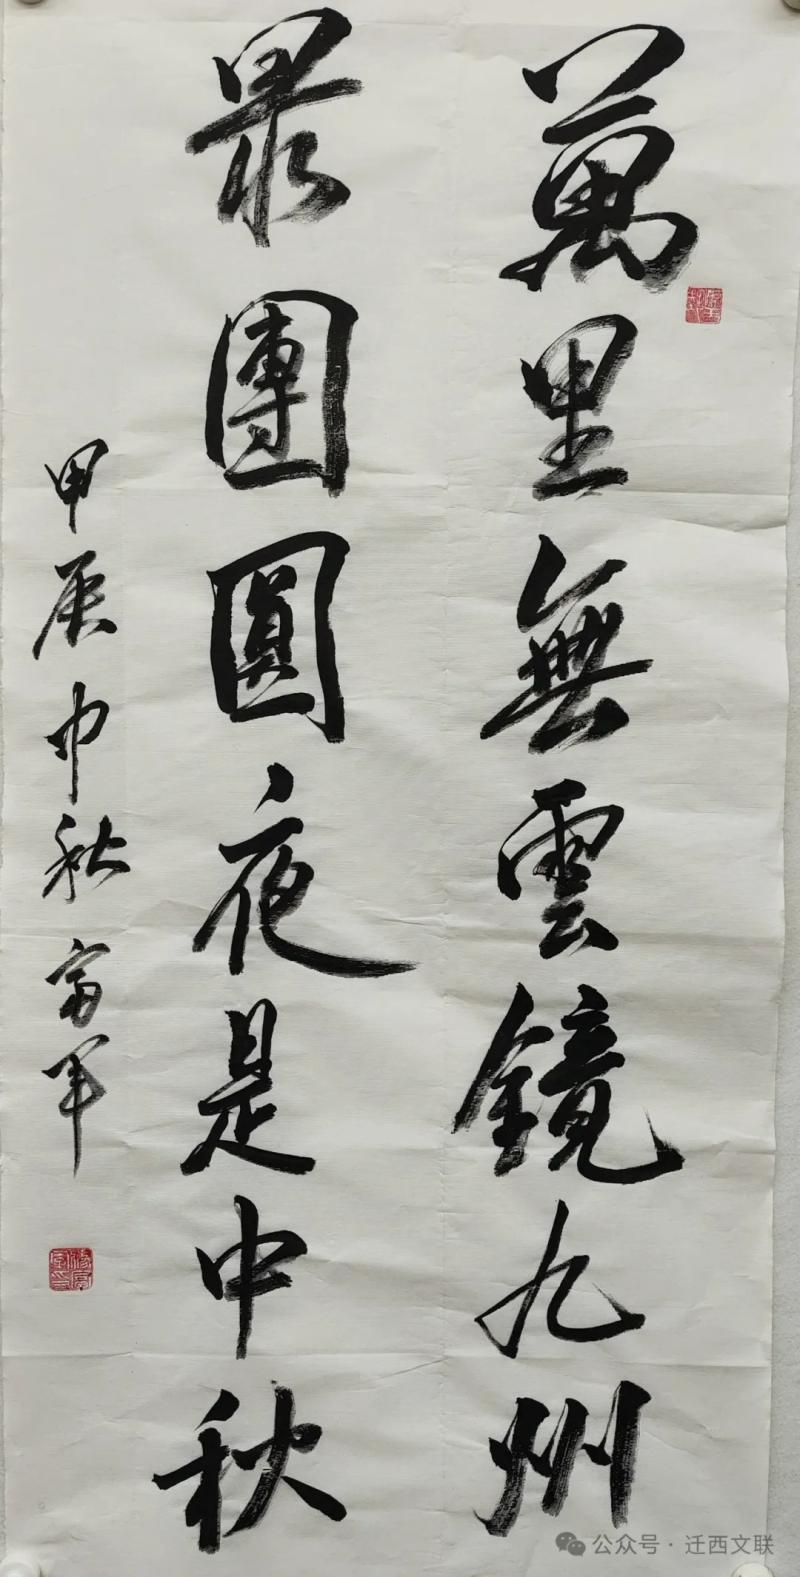 萬里無雲鏡九州
最團圓夜是中秋
甲辰中秋富軍
公众号·迁西文联